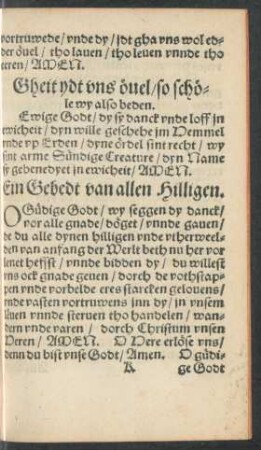 vortruwede / vnde dy / jdt gha vns wol ed-
der öuel / tho lauen / tho leuen vnnde tho
eren / AMEN.
Gheit ydt vns öuel / so schö-
le wy also beden.
Ewige Godt / dy sy danck ynde loff jn
ewicheit / dyn wille geschehe jm Hemmel
vnde vp Erden / dyne ördel sint recht / wy
sint arme Sündige Creature / dyn Name
sy gebenedyet in ewicheit / AMEN.
Ein Gebedt van allen Hilligen.
O Güdige Godt / wy seggen dy danck /
vor alle gnade / döget / vnnde gauen /
de du alle dynen hilligen vnde vtherweel-
den van anfang der Werlt beth nu her vor
lenet hefst / vnnde bidden dy / du willest
vns ock gnade geuen / dorch de vothstap-
pen vnde vorbelde eres starcken gelouens /
vnde vasten vortruwens inn dy / in vnsem
leuen vnnde steruen tho handelen / wan-
dern vnde varen / dorch Christum vnsen
Heren / AMEN. O Here erlöse vns /
denn du bist vnse Godt / Amen. O güdi-
K ge Godt